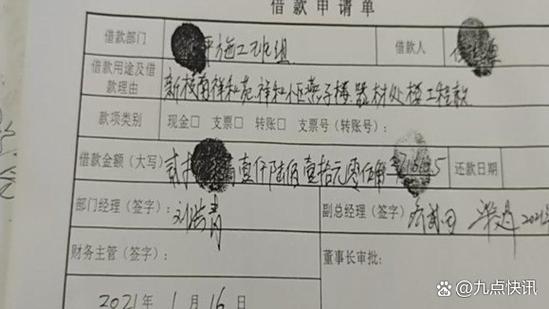 借款申请单
借款部门 施工班组 借款人
借款用途及借款理由 新校南祥和苑.祥和小区燕子楼.器材处楼工程款
款项类别 现金□ 支票□ 转账□ 支票号（转账号）：
借款金额（大写） 贰拾 壹仟陆佰壹拾元零伍角 还款日期
部门经理（签字）： 副总经理（签字） 2021
财务主管（签字）： 董事长审批：
2021年 1月16日
九点快讯